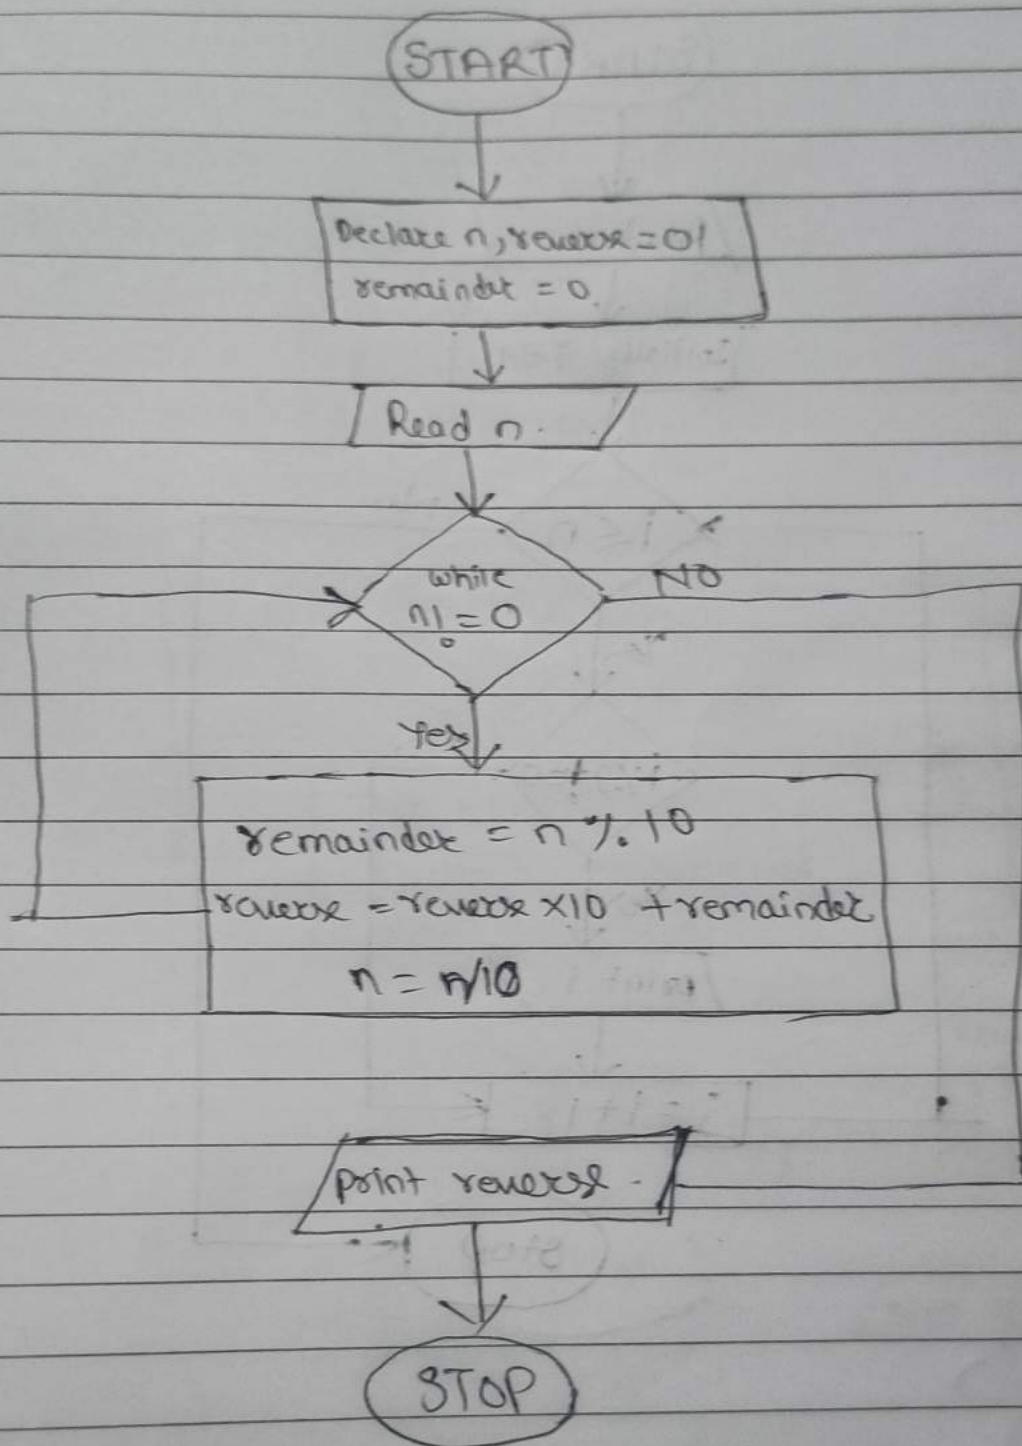 START
Declare n, reverse = 0,
remainder = 0.
Read n.
while
n! = 0
NO
Yes
remainder = n % 10
reverse = reverse x10 + remainder
n = n/10
print reverse.
STOP